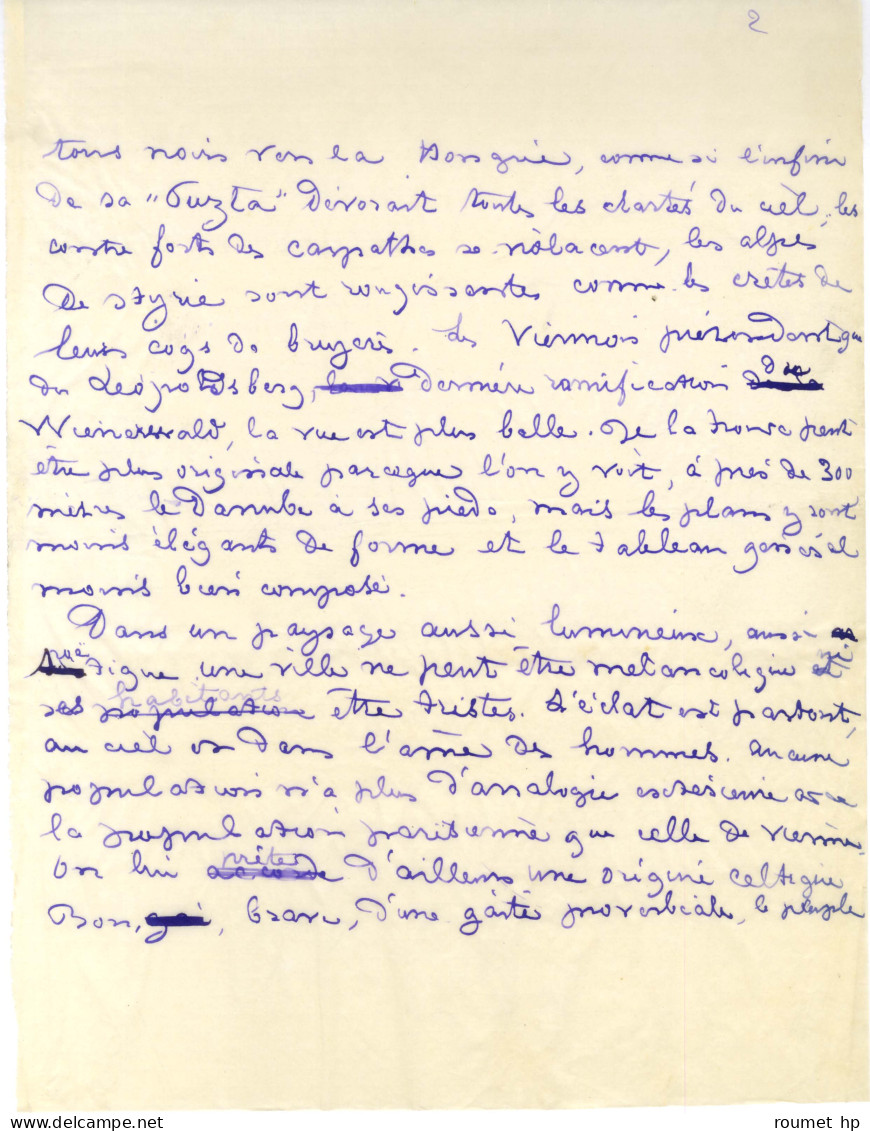 2
tous noirs vers la Hongrie, comme si l'infini
de sa "Puzta" dévorait toutes les clartés du ciel, les
contre forts des carpathes se violacent, les alpes
de styrie sont rougissantes comme les crêtes de
leurs coqs de bruyère. Les Viennois prétendent que
du Léopoldsberg, dernière ramification du
Wienerwald, la vue est plus belle. Je la trouve peut
être plus originale parceque l'on y voit, à près de 300
mètres le Danube à ses pieds, mais les plans y sont
moins élégants de forme et le tableau général
moins bien composé.
Dans un paysage aussi lumineux, aussi
poëtique une ville ne peut être mélancolique ni
ses habitants être tristes. L'éclat est partout,
au ciel et dans l'âme des hommes. aucune
population n'a plus d'analogie extérieure avec
la population parisienne que celle de vienne.
On lui prête d'ailleurs une origine celtique
Bon, gai, brave, d'une gaîté proverbiale, le peuple
roumet hp